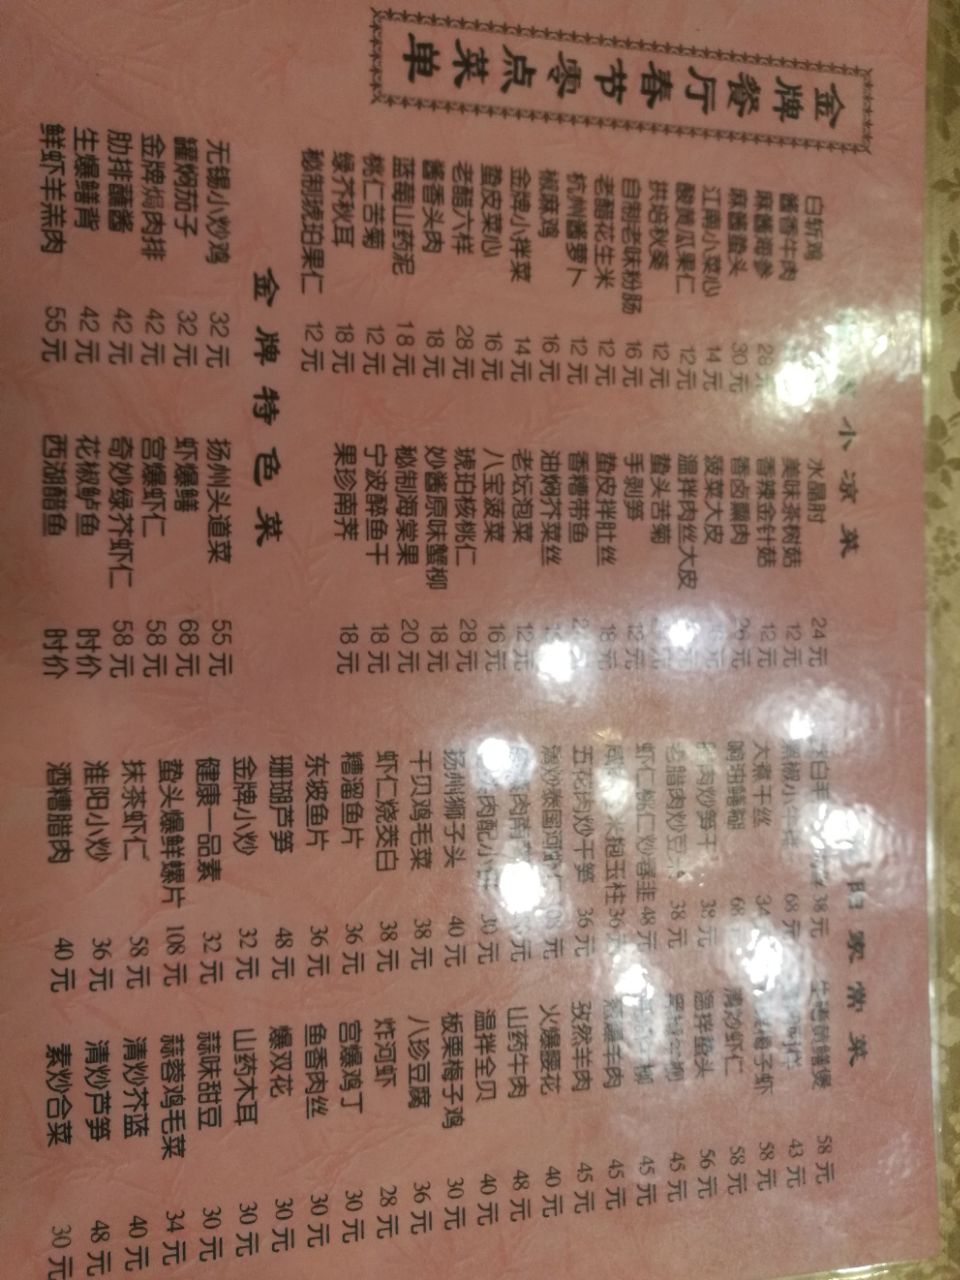 金牌餐厅春节零点菜单
小凉菜
白斩鸡 水晶肘 24元
酱香牛肉 美味茶树菇 12元
麻酱海参 28 香辣金针菇 12元
麻酱蛰头 30元 香卤 肉 元
江南小菜心 14元 菠菜大皮 元
酸黄瓜果仁 12元 温拌肉丝大皮
拱培秋葵 12元 蛰头苦菊
自制老味粉肠 16元 手剥笋 12元
老醋花生米 12元 蛰皮拌肚丝 18元
杭州酱萝卜 12元 香糟带鱼
椒麻鸡 16元 油焖芥菜丝
金牌小拌菜 14元 老坛泡菜 12元
蛰皮菜心 16元 八宝菠菜 16元
老醋六样 28元 琥珀核桃仁 28元
酱香头肉 18元 妙酱原味蟹柳 18元
蓝莓山药泥 18元 秘制海棠果 20元
桃仁苦菊 12元 宁波醉鱼干 18元
绿芥秋耳 18元 果珍南荠 18元
秘制琥珀果仁 12元
金牌特色菜
无锡小炒鸡 32元 扬州头道菜 55元
罐焖茄子 32元 虾爆鳝 68元
金牌焗肉排 42元 宫爆虾仁 58元
肋排蘸酱 42元 奇妙绿芥虾仁 58元
生爆鳝背 42元 花椒鲈鱼 时价
鲜虾羊羔肉 55元 西湖醋鱼 时价
家常菜
38元 鳝煲 58元
黑椒小牛 68元 43元
大煮干丝 34 虾 58元
响油鳝糊 68 清炒虾仁 58元
肉炒笋干 38元 温拌蛰头 56元
老腊肉炒豆 38元 45元
虾仁桃仁炒香韭 48元 45元
火炮玉柱 36元 葱爆羊肉 45元
五花肉炒干笋 36元 孜然羊肉 45元
清炒泰国河虾仁 108元 火爆腰花 40元
山药牛肉 48元
肉配小 30元 温拌全贝 40元
扬州狮子头 40元 板栗梅子鸡 30元
干贝鸡毛菜 38元 八珍豆腐 36元
虾仁烧茭白 38元 炸河虾 28元
糟溜鱼片 36元 宫爆鸡丁 30元
东坡鱼片 36元 鱼香肉丝 30元
珊瑚芦笋 48元 爆双花 30元
金牌小炒 32元 山药木耳 30元
健康一品素 32元 蒜味甜豆 30元
蛰头爆鲜螺片 108元 蒜蓉鸡毛菜 34元
抹茶虾仁 58元 清炒芥蓝 40元
淮阳小炒 36元 清炒芦笋 48元
酒糟腊肉 40元 素炒合菜 30元